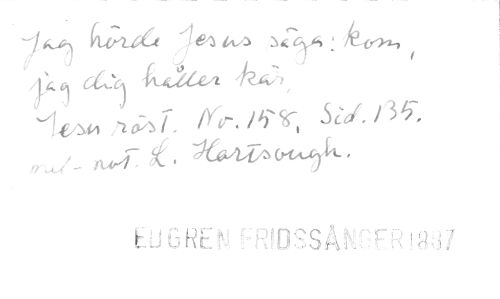 Jag hörde Jesus säga: kom,
jag dig håller kär,
Jesu röst. No. 158, Sid. 135.
mel-not. L. Hartsough.
EUGREN FRIDSSÅNGER 1887